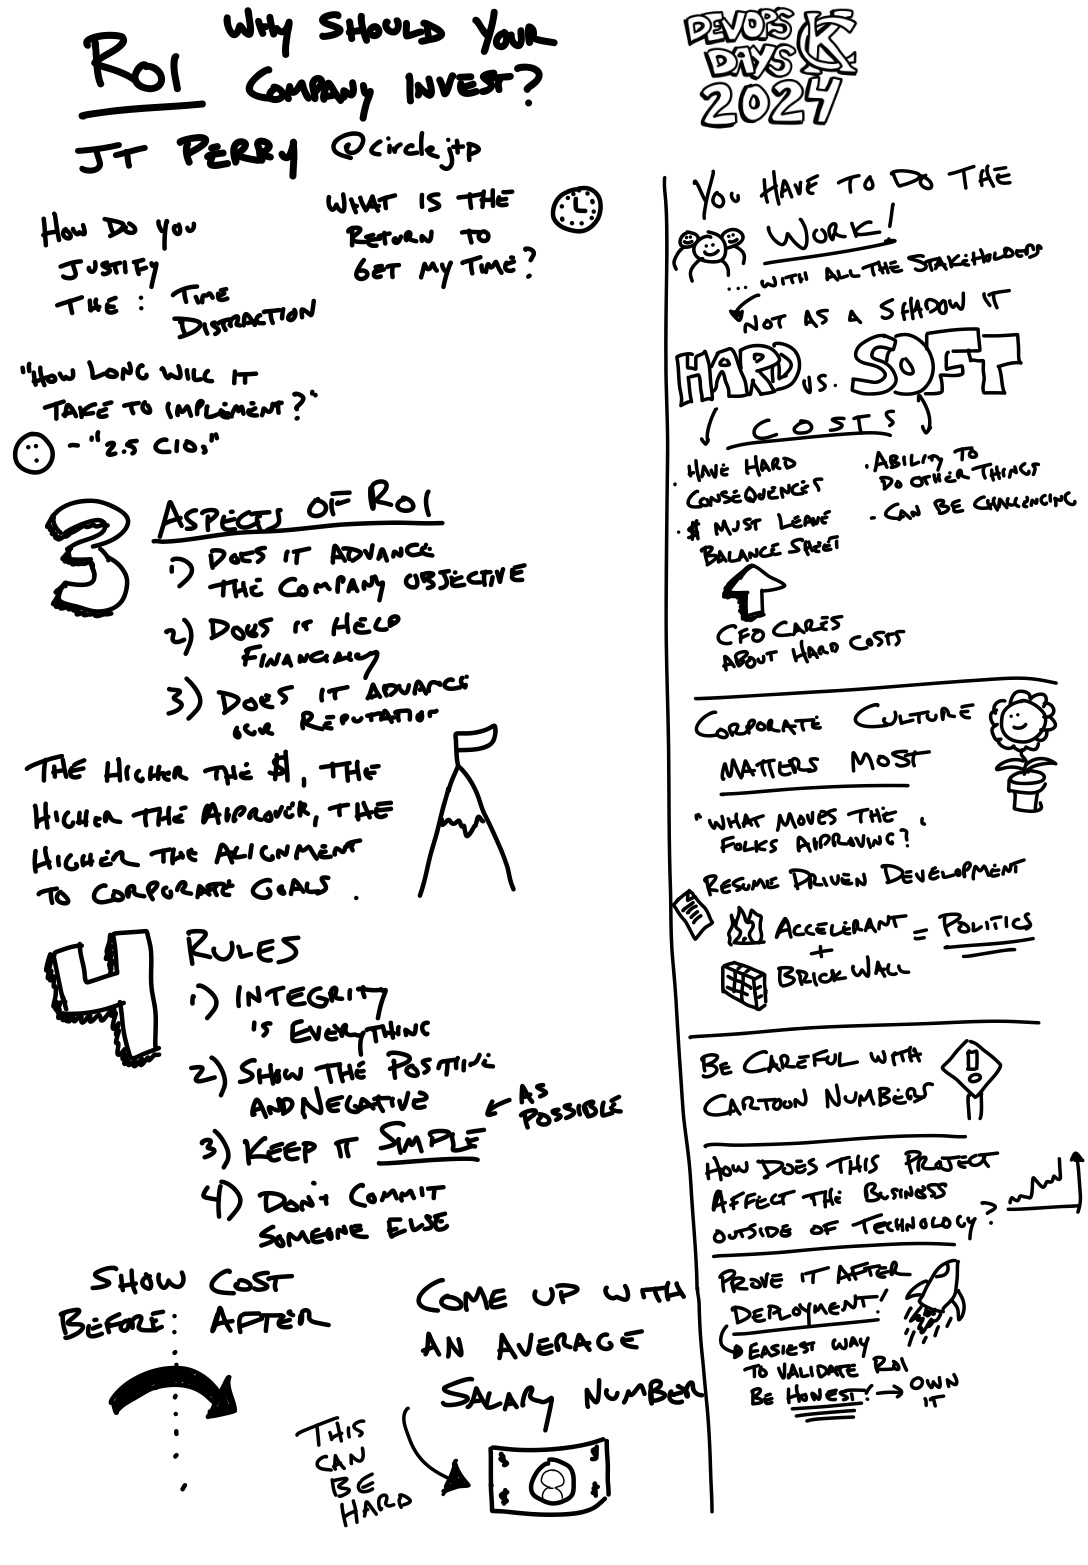 ROI
WHY SHOULD YOUR
COMPANY INVEST?
JT PERRY @circlejtp
HOW DO YOU
JUSTIFY
THE : TIME
DISTRACTION
WHAT IS THE
RETURN TO
GET MY TIME?
"HOW LONG WILL IT
TAKE TO IMPLEMENT?"
- "2.5 CIOs"
3 ASPECTS OF ROI
1) DOES IT ADVANCE
THE COMPANY OBJECTIVE
2) DOES IT HELP
FINANCIALLY
3) DOES IT ADVANCE
OUR REPUTATION
THE HIGHER THE $, THE
HIGHER THE APPROVER, THE
HIGHER THE ALIGNMENT
TO CORPORATE GOALS.
4 RULES
1) INTEGRITY
IS EVERYTHING
2) SHOW THE POSITIVE
AND NEGATIVE
3) KEEP IT SIMPLE
AS
POSSIBLE
4) DON'T COMMIT
SOMEONE ELSE
SHOW COST
BEFORE : AFTER
COME UP WITH
AN AVERAGE
SALARY NUMBER
THIS
CAN
BE
HARD
$ $
$ $
DEVOPS
DAYS KC
2024
YOU HAVE TO DO THE
WORK!
... WITH ALL THE STAKEHOLDERS
NOT AS A SHADOW IT
HARD VS. SOFT
COSTS
· HAVE HARD
CONSEQUENCES
· $ MUST LEAVE
BALANCE SHEET
· ABILITY TO
DO OTHER THINGS
· CAN BE CHALLENGING
CFO CARES
ABOUT HARD COSTS
CORPORATE CULTURE
MATTERS MOST
"WHAT MOVES THE
FOLKS APPROVING?"
RESUME DRIVEN DEVELOPMENT
ACCELERANT = POLITICS
+
BRICK WALL
BE CAREFUL WITH
CARTOON NUMBERS
!
HOW DOES THIS PROJECT
AFFECT THE BUSINESS
OUTSIDE OF TECHNOLOGY?
PROVE IT AFTER
DEPLOYMENT!
EASIEST WAY
TO VALIDATE ROI
BE HONEST! → OWN
IT